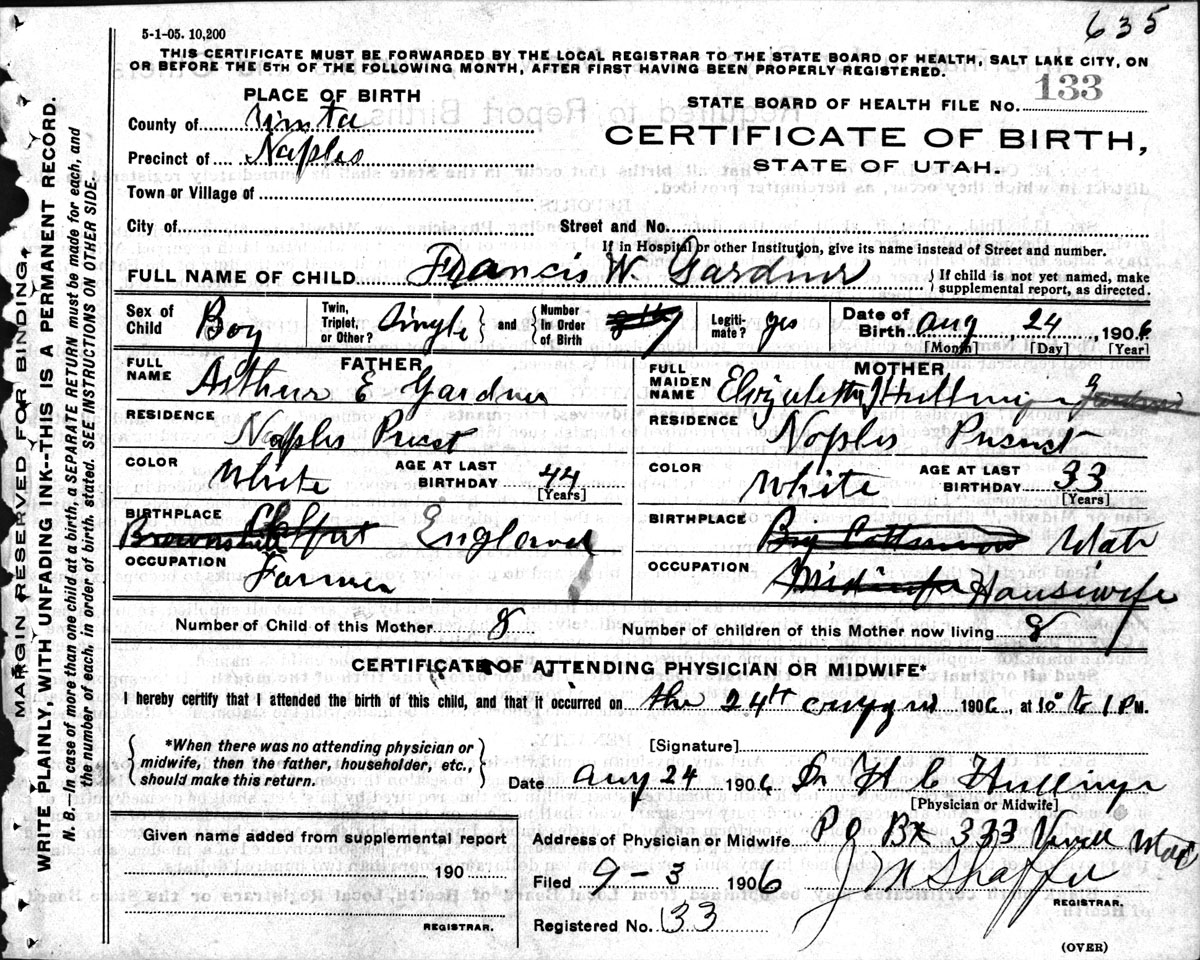 635
5-1-05. 10,200
THIS CERTIFICATE MUST BE FORWARDED BY THE LOCAL REGISTRAR TO THE STATE BOARD OF HEALTH, SALT LAKE CITY, ON
OR BEFORE THE 5TH OF THE FOLLOWING MONTH, AFTER FIRST HAVING BEEN PROPERLY REGISTERED.
PLACE OF BIRTH
STATE BOARD OF HEALTH FILE NO. 133
County of
CERTIFICATE OF BIRTH,
Precinct of Naples
STATE OF UTAH.
Town or Village of
City of Street and No.
If in Hospital or other Institution, give its name instead of Street and number.
FULL NAME OF CHILD Francis W. Gardner
If child is not yet named, make
supplemental report, as directed.
Sex of Child Boy
Twin, Triplet, or Other? Single
and Number In Order of Birth
Legiti-mate? yes
Date of Birth Aug 24, 1906
[Month] [Day] [Year]
FATHER
FULL NAME Arthur E Gardner
RESIDENCE
Naples
COLOR White
AGE AT LAST BIRTHDAY 44
[Years]
BIRTHPLACE England
OCCUPATION Farmer
MOTHER
FULL MAIDEN NAME
RESIDENCE
Naples
COLOR White
AGE AT LAST BIRTHDAY 33
[Years]
BIRTHPLACE Big Cottonwood Utah
OCCUPATION Midwife Housewife
Number of Child of this Mother 8
Number of children of this Mother now living 8
CERTIFICATE OF ATTENDING PHYSICIAN OR MIDWIFE*
I hereby certify that I attended the birth of this child, and that it occurred on the 24th 1906, at M.
*When there was no attending physician or
midwife, then the father, householder, etc.,
should make this return.
[Signature]
Date Aug 24 1906 Dr H C Hullinger
[Physician or Midwife]
Given name added from supplemental report
190
REGISTRAR.
Address of Physician or Midwife Bx 333
Filed 9-3 1906 J N Shaffer
REGISTRAR.
Registered No. 33
(OVER)
MARGIN RESERVED FOR BINDING.
WRITE PLAINLY, WITH UNFADING INK--THIS IS A PERMANENT RECORD.
N. B.—In case of more than one child at a birth, a SEPARATE RETURN must be made for each, and
the number of each, in order of birth, stated. SEE INSTRUCTIONS ON OTHER SIDE.